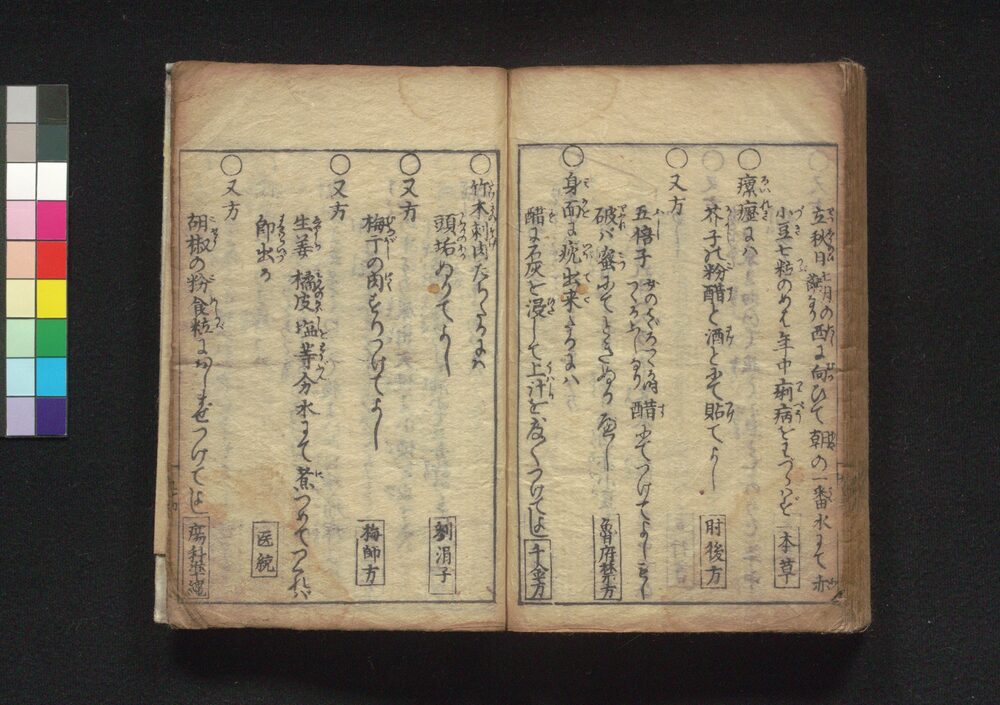 立秋日七月の酉に向ひて朝の一番水にて赤
小豆七粒のめば年中痢病をわづらはず 本草
○瘰癧には
芥子の粉醋と酒とにて貼てよし 肘後方
○又方
五倍子 醋にてつけてよし
破バ蜜にてときぬるべし 魯府禁方
○身面に疣出来たるには
醋に石灰を浸して上汁を度〻つけてよし 千金方
○竹木刺肉にたちたるには
頭垢ぬりてよし 劉涓子
○又方
梅干の肉をすりつけてよし 梅師方
○又方
生姜 橘皮 塩等分水にて煮つめてつくれバ
即出る 医統
○又方
胡椒の粉食粒におしまぜつけてよし